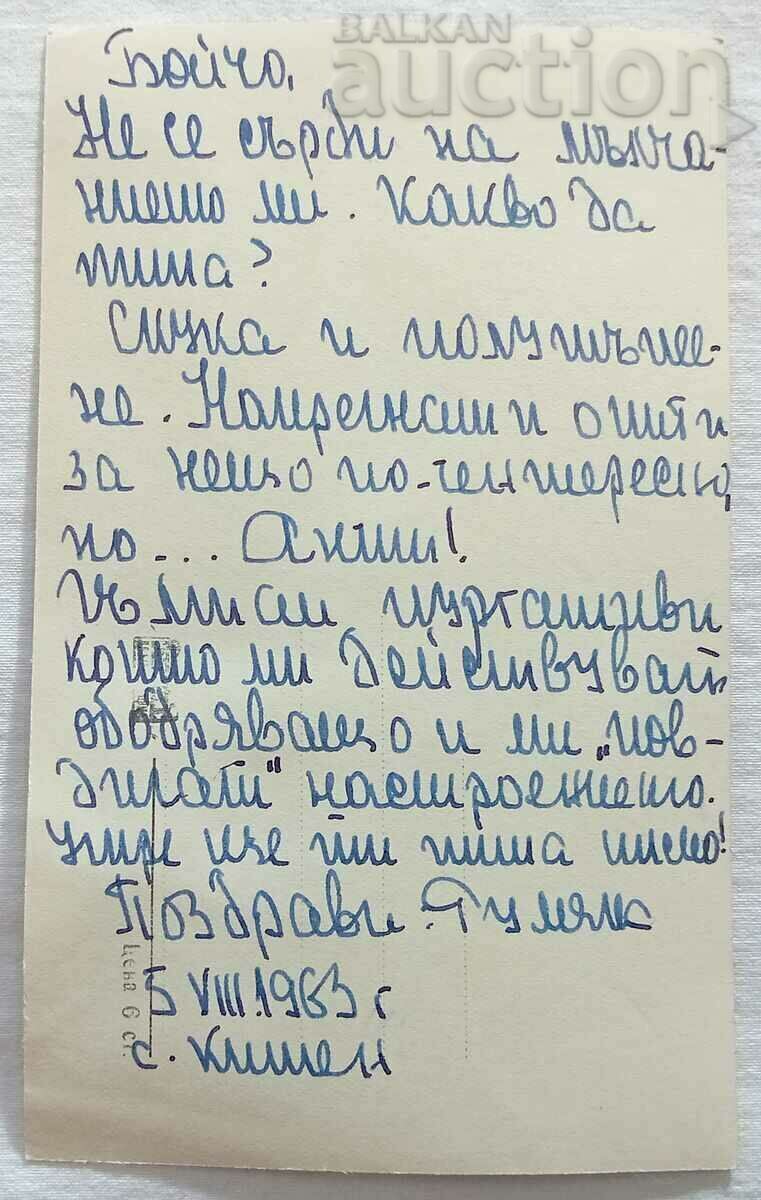 BALKAN
auction
Бойчо,
Не се сърди на мълча-
нието ми. Какво да
пиша?
Скука и полуитъпле-
не. Напрегнати опити
за нещо по-интересно,
но... Алити!
Има ми си
които ми действуват
ободряващо и ми „пов-
дигат" настроението.
Утре ще ти пиша писмо!
Поздрави.
5 VIII.1963 г
с. Кишен
Цена 6 ст.